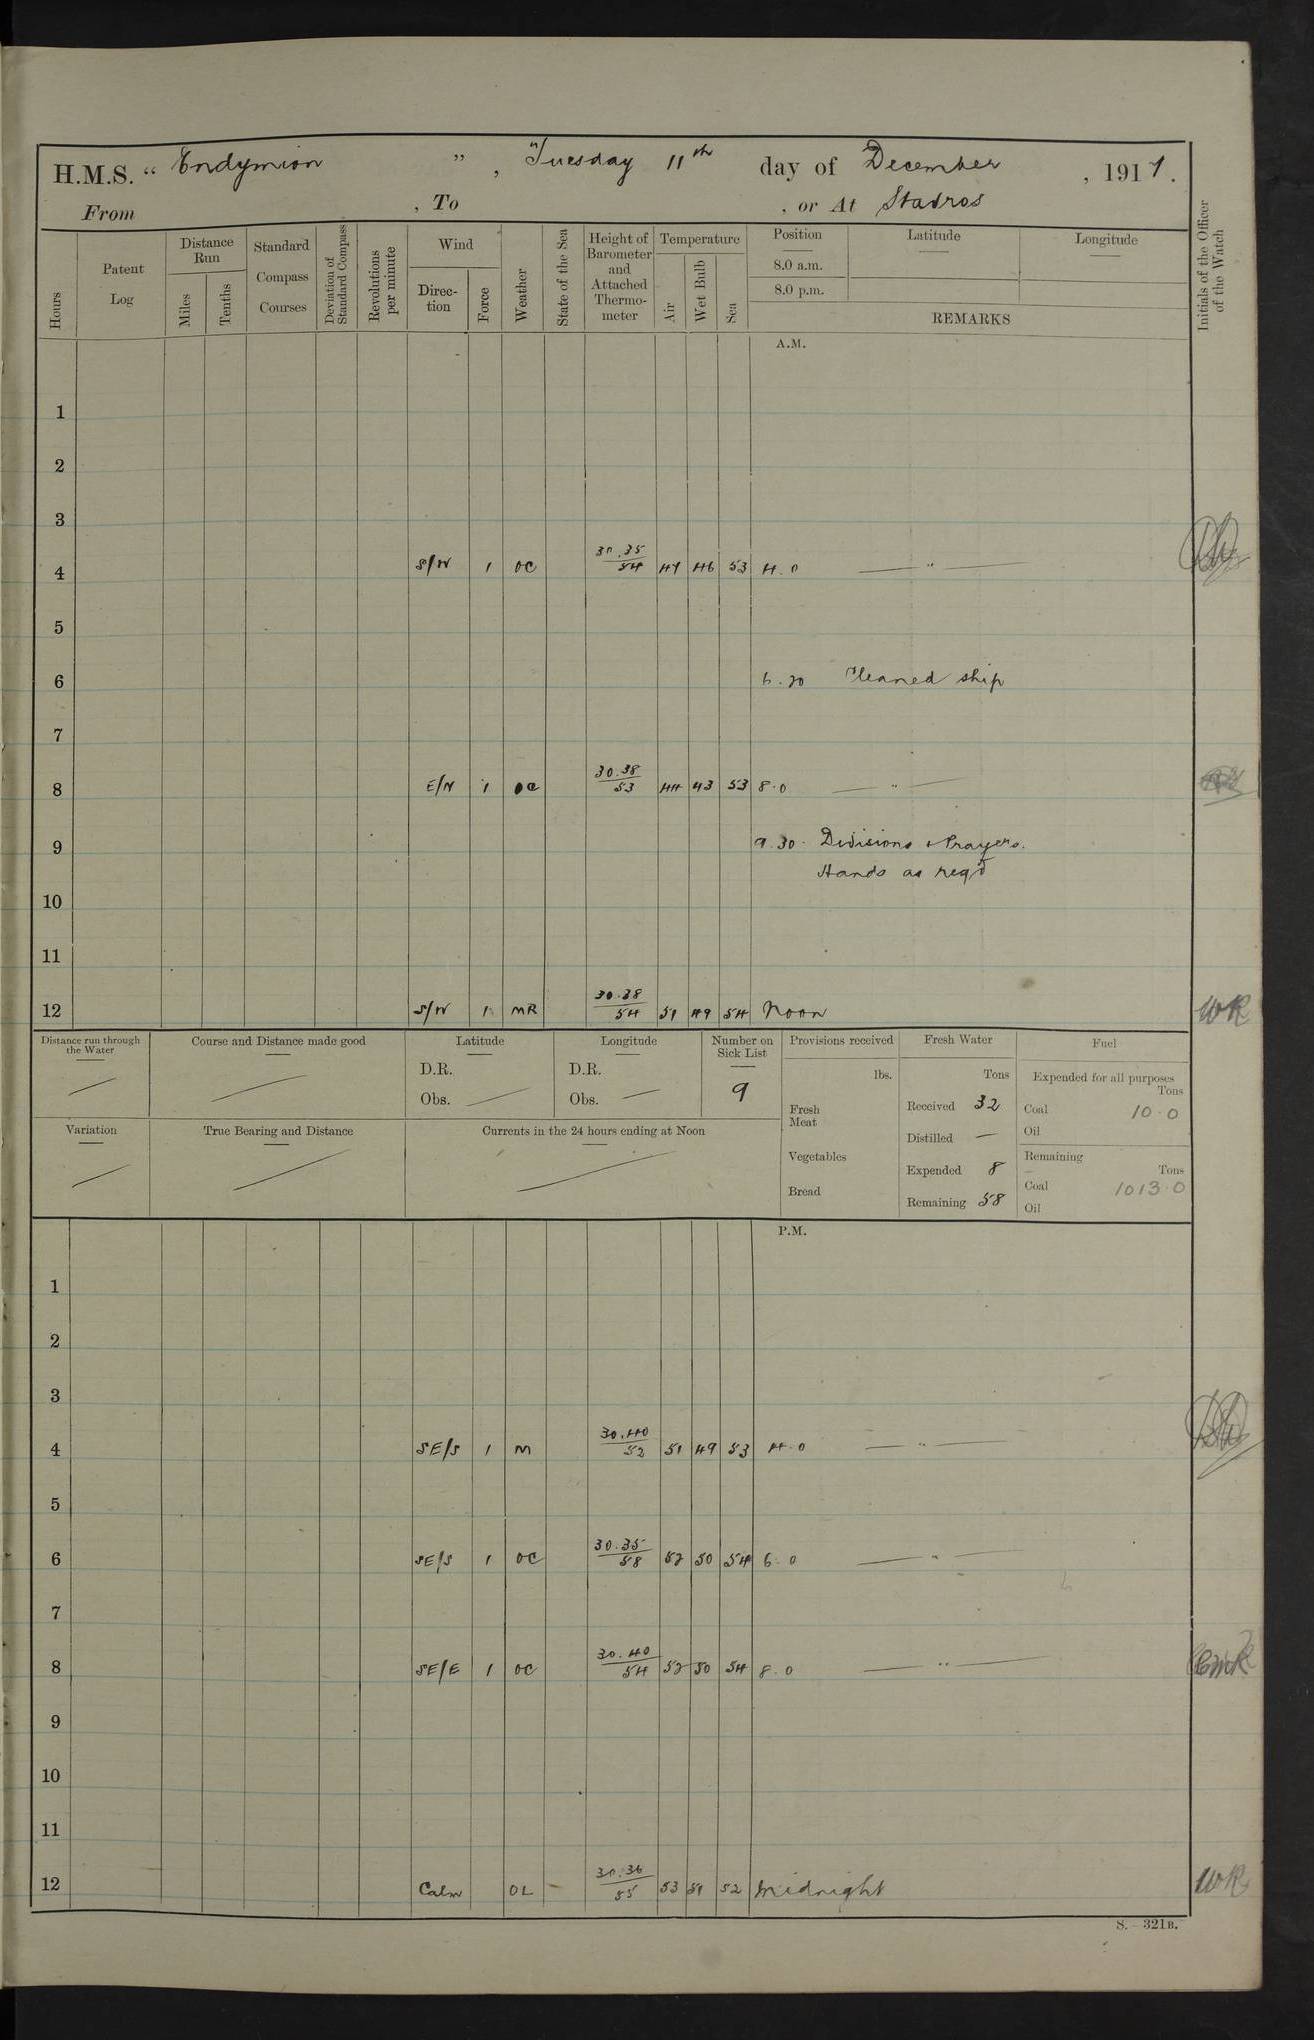 H.M.S. “ Endymion ”, Tuesday 11th day of December, 1917.
From , To , or At Stavros
Hours
Patent Log
Distance Run
Miles
Tenths
Standard Compass Courses
Deviation of Standard Compass
Revolutions per minute
Wind
Direction
Force
Weather
State of the Sea
Height of Barometer and Attached Thermometer
Temperature
Air
Wet Bulb
Sea
Position
8.0 a.m.
8.0 p.m.
Latitude
Longitude
REMARKS
Initials of the Officer of the Watch
A.M.
1
2
3
4 S/W 1 OC 30.35/54 47 46 53 4.0 — " —
5
6 6.20 Cleaned ship
7
8 E/N 1 OC 30.38/53 44 43 53 8.0 — " —
9 9.30. Divisions & Prayers.
Hands as reqd
10
11
12 S/W 1 MR 30.38/54 51 49 54 Noon WR
Distance run through the Water
Course and Distance made good
Latitude
D.R.
Obs.
Longitude
D.R.
Obs.
Number on Sick List
9
Variation
True Bearing and Distance
Currents in the 24 hours ending at Noon
Provisions received
lbs.
Fresh Meat
Vegetables
Bread
Fresh Water
Tons
Received 32
Distilled —
Expended 8
Remaining 58
Fuel
Expended for all purposes
Tons
Coal 10.0
Oil
Remaining
Tons
Coal 1013.0
Oil
P.M.
1
2
3
4 SE/S 1 M 30.40/52 51 49 53 4.0 — " —
5
6 SE/S 1 OC 30.35/58 52 50 54 6.0 — " —
7
8 SE/E 1 OC 30.40/54 52 50 54 8.0 — " —
9
10
11
12 Calm OL 30.36/55 53 51 52 Midnight WR
S.—321B.